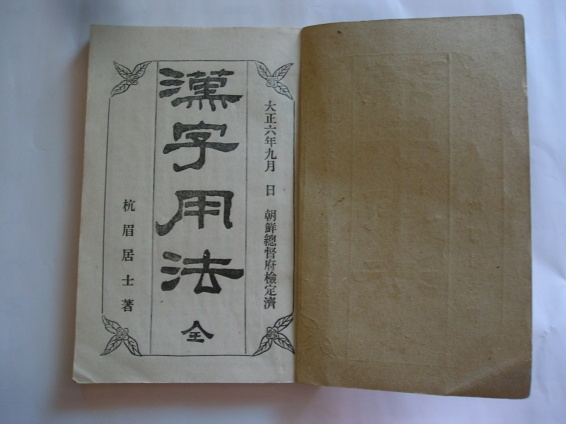 大正六年九月 日 朝鮮總督府檢定濟
漢字用法 全
杭眉居士著